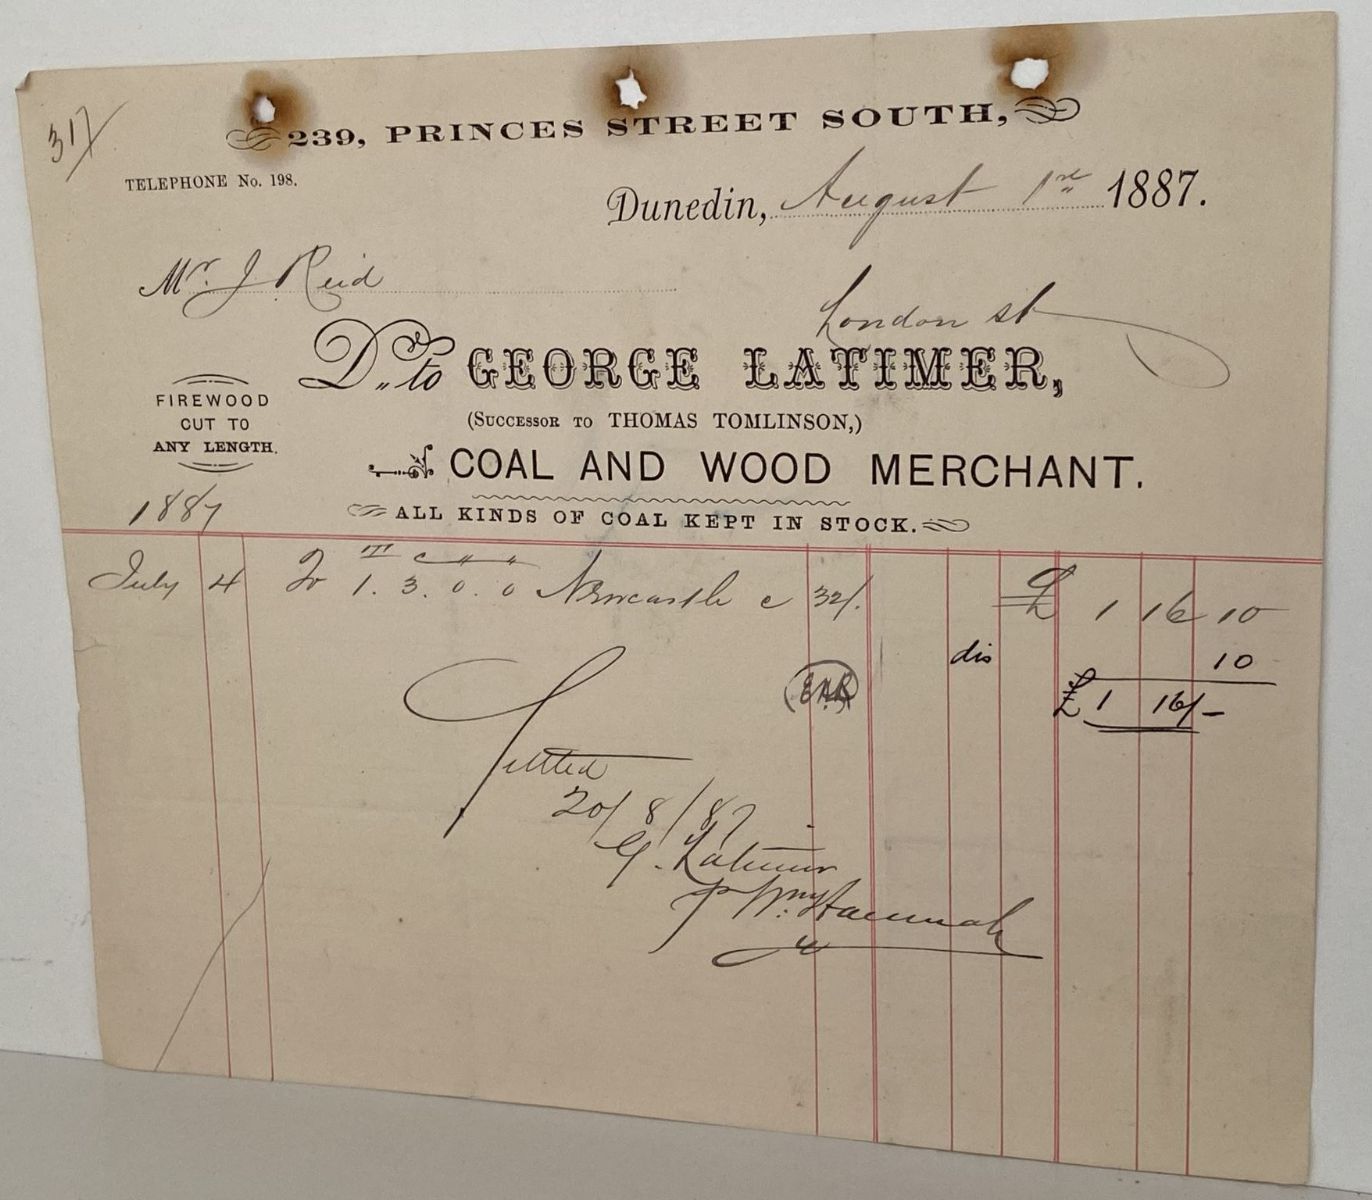 317
239, PRINCES STREET SOUTH,
TELEPHONE No. 198.
Dunedin, August 1st 1887.
Mr. J. Reid
London St
Dr. to GEORGE LATIMER,
(SUCCESSOR TO THOMAS TOMLINSON,)
FIREWOOD
CUT TO
ANY LENGTH.
COAL AND WOOD MERCHANT.
ALL KINDS OF COAL KEPT IN STOCK.
1887
T c " "
July 4 To 1. 3. 0. 0 Newcastle @ 32/. £ 1 16 10
dis 10
£ 1 16/-
Settled
20/8/87
G. Latimer
p Wm Hannah